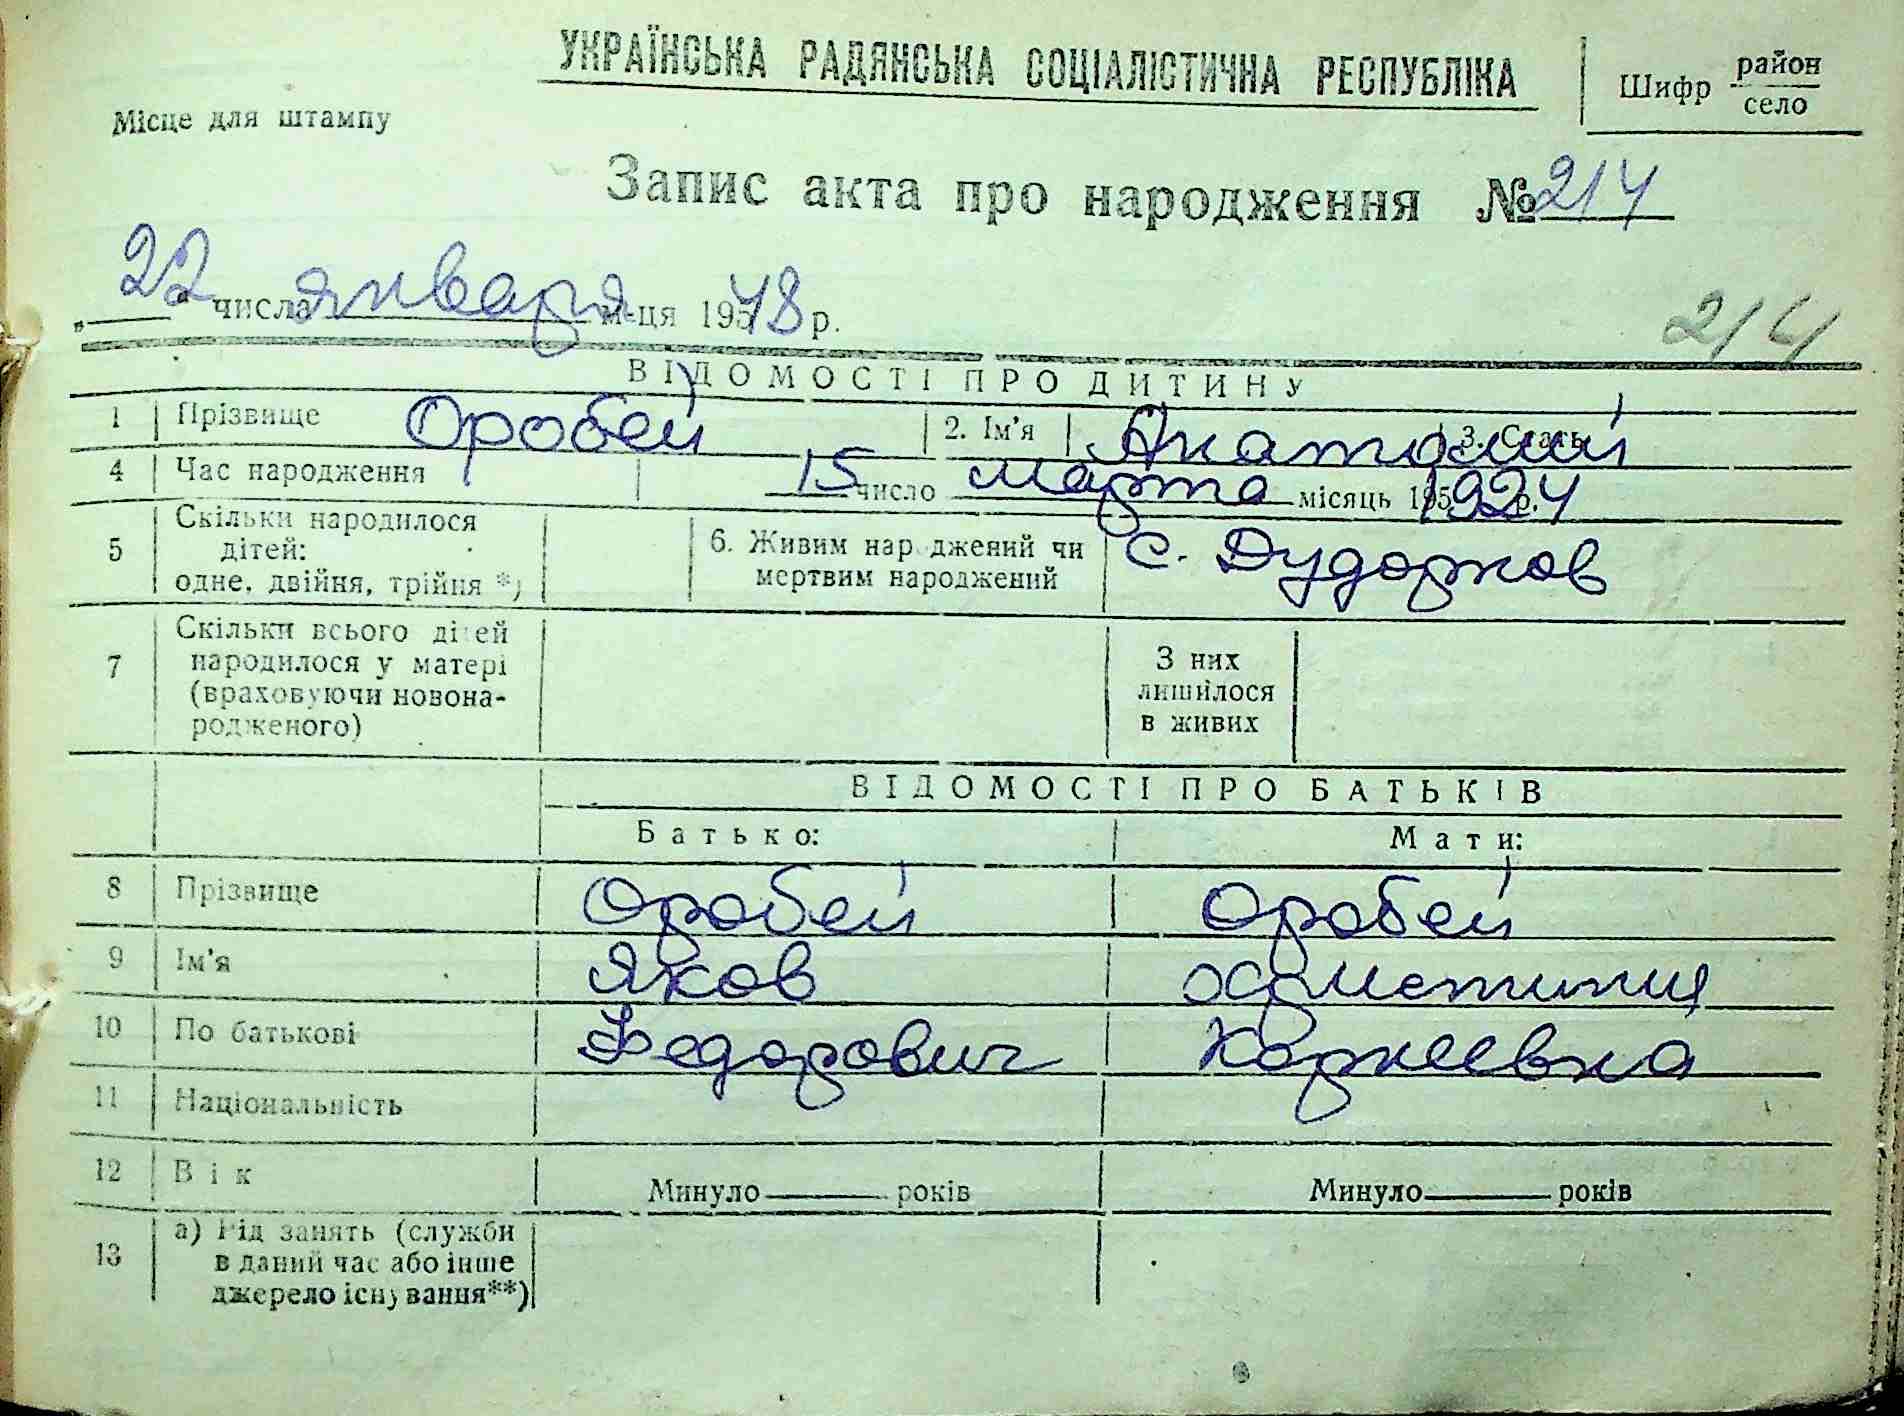 УКРАЇНСЬКА РАДЯНСЬКА СОЦІАЛІСТИЧНА РЕСПУБЛІКА
Шифр район
село
Місце для штампу
Запис акта про народження № 214
„22 числа января м-ця 1948 р.
214
ВІДОМОСТІ ПРО ДИТИНУ
1 Прізвище Оробей 2. Ім'я Анатолий 3. Стать
4 Час народження 15 число марта місяць 195 1924 р.
5 Скільки народилося дітей: одне, двійня, трійня *)
6. Живим народжений чи мертвим народжений с. Дударков
7 Скільки всього дітей народилося у матері (враховуючи новонародженого)
З них лишилося в живих
ВІДОМОСТІ ПРО БАТЬКІВ
Батько: Мати:
8 Прізвище Оробей Оробей
9 Ім'я Яков
10 По батькові Федорович Корнеевна
11 Національність
12 Вік Минуло року років Минуло років
13 а) Рід занять (служби в даний час або інше джерело існування**)